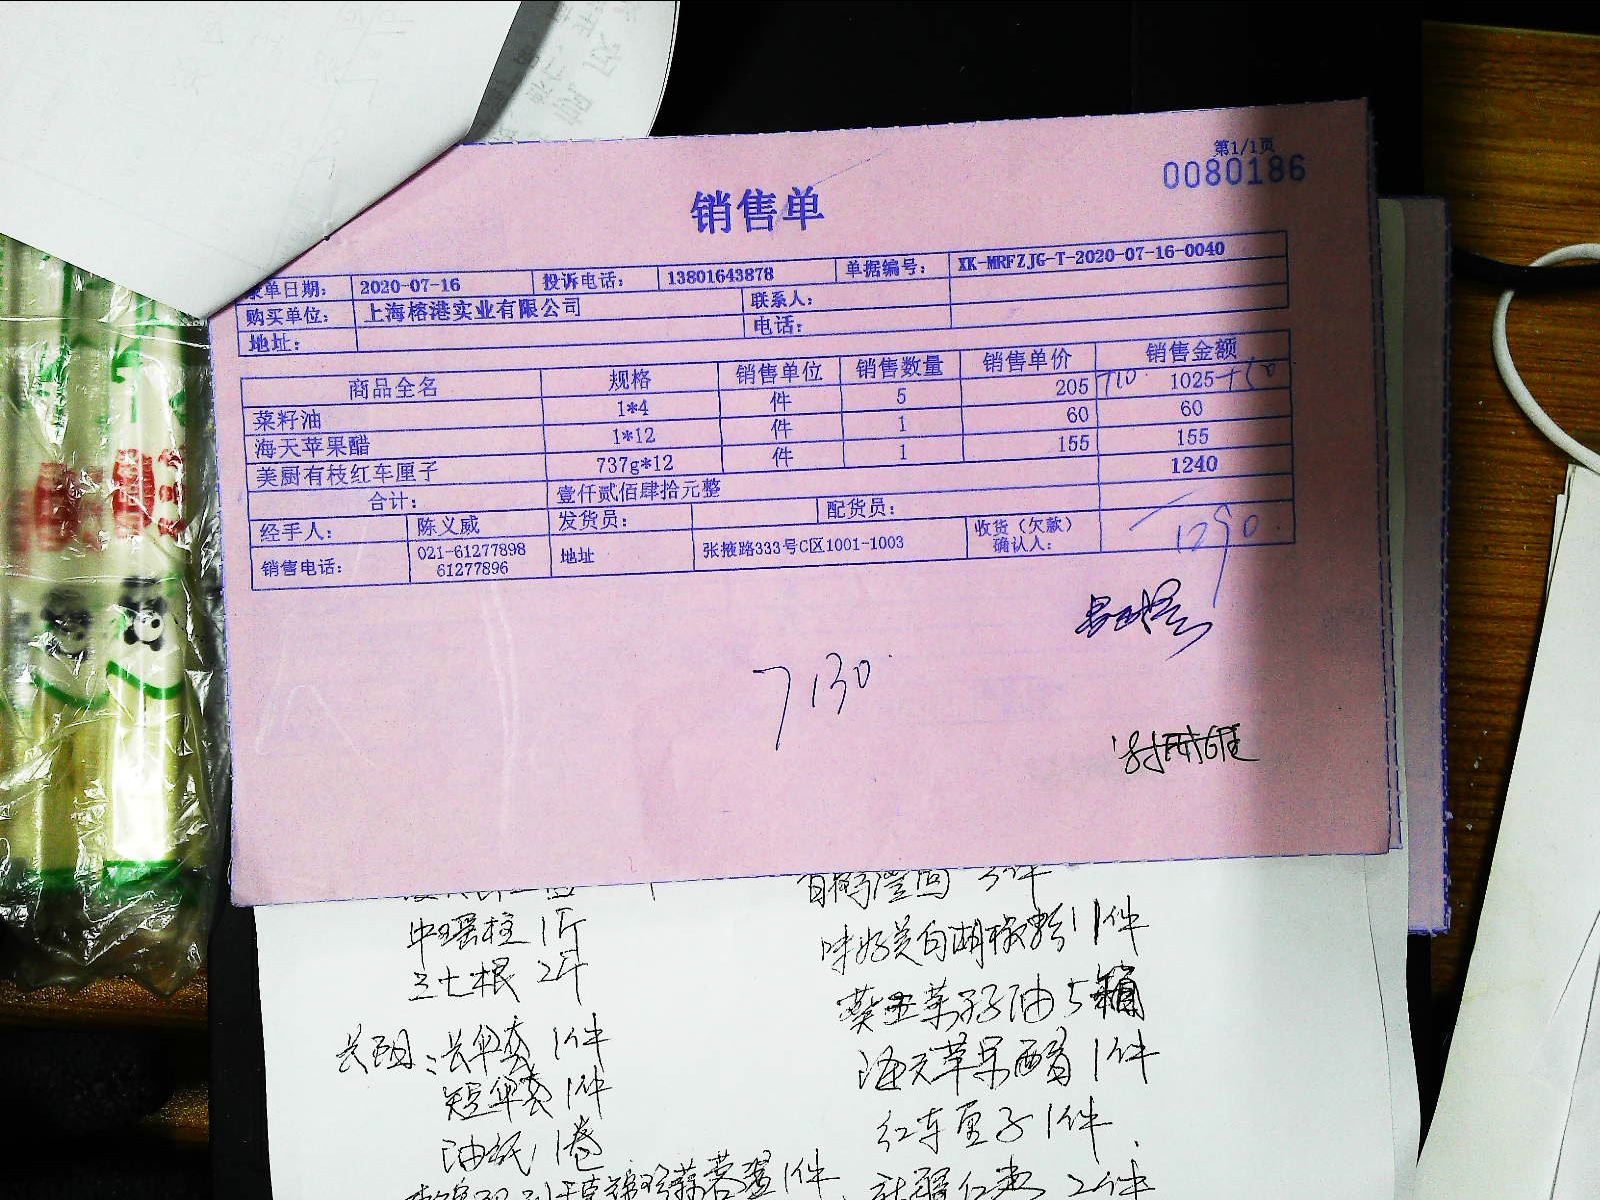 第1/1页
0080186
销售单
录单日期: 2020-07-16 投诉电话: 13801643878 单据编号: XK-MRFZJG-T-2020-07-16-0040
购买单位: 上海榕港实业有限公司 联系人:
地址: 电话:
商品全名 规格 销售单位 销售数量 销售单价 销售金额
菜籽油 1*4 件 5 205 1025 +50
海天苹果醋 1*12 件 1 60 60
美厨有枝红车厘子 737g*12 件 1 155 155
合计: 壹仟贰佰肆拾元整 1240
经手人: 陈义威 发货员: 配货员: 收货(欠款)确认人: 1290.
销售电话: 021-61277898 61277896 地址 张掖路333号C区1001-1003
7130.
中瑶柱 1斤
三七根 2斤
长伞套 1件
短伞套 1件
油纸 1卷
味好美白胡椒粉 1件
菜籽油 5箱
海天苹果醋 1件
红车厘子 1件
2件